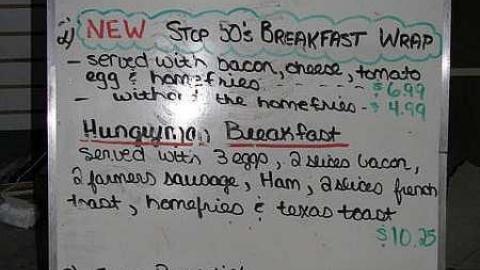 2) NEW STOP 50's BREAKFAST WRAP
- served with bacon, cheese, tomato
egg & homefries - - - - - - - $6.99
- without the homefries - $4.99
Hungryman Breakfast
served with 3 eggs, 2 slices bacon,
2 farmers sausage, Ham, 2 slices french
toast, homefries & texas toast
$10.25